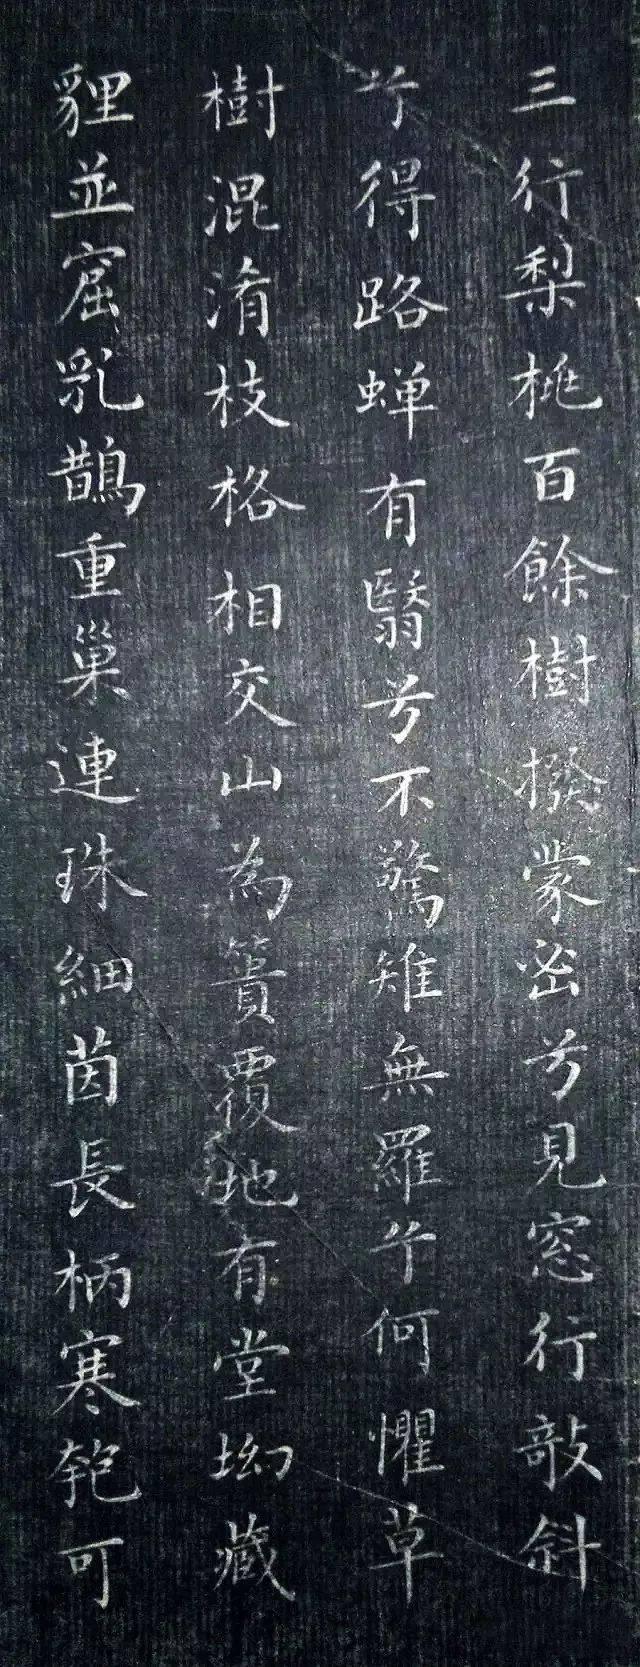 三行梨桃百餘樹撥蒙密兮見窓行敧斜
兮得路蝉有翳兮不驚雉無羅兮何懼草
樹混淆枝格相交山為簣覆地有堂坳藏
貍並窟乳鵲重巢連珠細茵長柄寒匏可